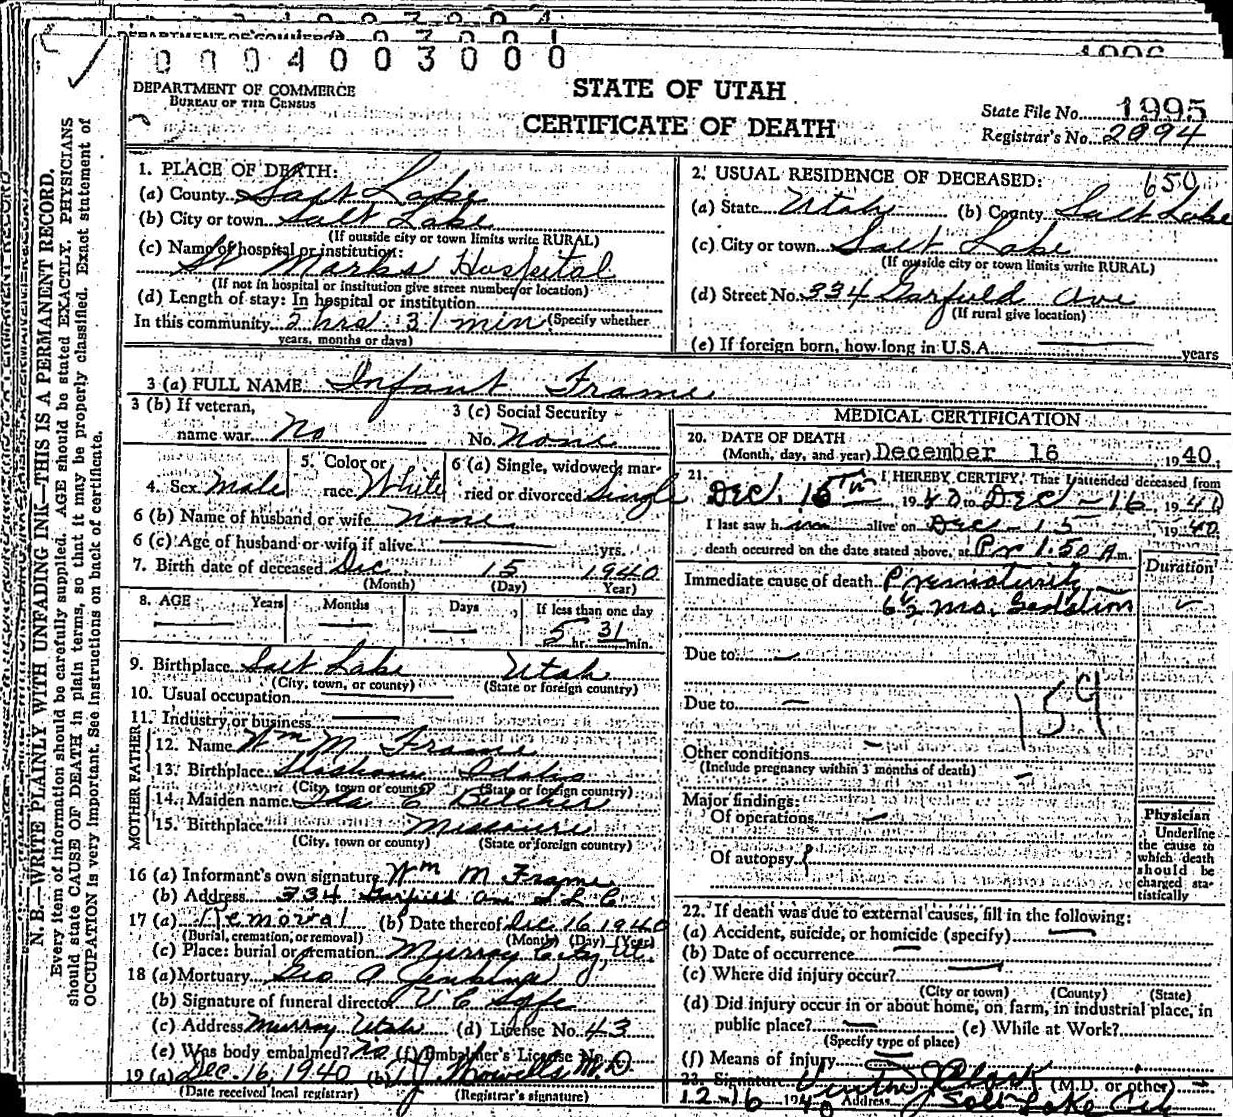 0004003000
DEPARTMENT OF COMMERCE
BUREAU OF THE CENSUS
STATE OF UTAH
CERTIFICATE OF DEATH
State File No. 1995
Registrar's No. 2094
N. B.—WRITE PLAINLY WITH UNFADING INK—THIS IS A PERMANENT RECORD.
Every item of information should be carefully supplied. AGE should be stated EXACTLY. PHYSICIANS
should state CAUSE OF DEATH in plain terms, so that it may be properly classified. Exact statement of
OCCUPATION is very important. See instructions on back of certificate.
1. PLACE OF DEATH:
(a) County Salt Lake
(b) City or town Salt Lake
(If outside city or town limits write RURAL)
(c) Name of hospital or institution:
St Marks Hospital
(If not in hospital or institution give street number or location)
(d) Length of stay: In hospital or institution
In this community 5 hrs 31 min (Specify whether
years, months or days)
2. USUAL RESIDENCE OF DECEASED: 650
(a) State Utah (b) County Salt Lake
(c) City or town Salt Lake
(If outside city or town limits write RURAL)
(d) Street No. 334 Garfield Ave
(If rural give location)
(e) If foreign born, how long in U.S.A. years
3 (a) FULL NAME Infant Frame
3 (b) If veteran, name war No
3 (c) Social Security No. none
4. Sex Male
5. Color or race White
6 (a) Single, widowed, married or divorced Single
6 (b) Name of husband or wife none
6 (c) Age of husband or wife if alive yrs.
7. Birth date of deceased Dec 15 1940
(Month) (Day) (Year)
8. AGE Years Months Days If less than one day
5 hr. 31 min.
9. Birthplace Salt Lake Utah
(City, town, or county) (State or foreign country)
10. Usual occupation
11. Industry or business
FATHER
12. Name Wm M Frame
13. Birthplace Idaho
(City, town or county) (State or foreign country)
MOTHER
14. Maiden name Ida C Belcher
15. Birthplace Missouri
(City, town or county) (State or foreign country)
16 (a) Informant's own signature Wm M Frame
(b) Address 334 Garfield Ave S L C
17 (a) Removal (b) Date thereof Dec 16 1940
(Burial, cremation, or removal) (Month) (Day) (Year)
(c) Place: burial or cremation Murray City, Ut.
18 (a) Mortuary Geo A Jenkins
(b) Signature of funeral director
(c) Address Murray Utah (d) License No. 43
(e) Was body embalmed? No (f) Embalmer's License No.
19 (a) Dec. 16, 1940 (b) M.D.
(Date received local registrar) (Registrar's signature)
MEDICAL CERTIFICATION
20. DATE OF DEATH
(Month, day, and year) December 16 1940.
21. I HEREBY CERTIFY, That I attended deceased from
Dec. 15th 1940 to Dec - 16, 1940
I last saw him alive on Dec - 15 1940
death occurred on the date stated above, at 1.50 A m.
Duration
Immediate cause of death Prematurity
6½ mo. Gestation
Due to
Due to
159
Other conditions
(Include pregnancy within 3 months of death)
Major findings:
Of operations
Of autopsy
Physician
Underline
the cause to
which death
should be
charged sta-
tistically
22. If death was due to external causes, fill in the following:
(a) Accident, suicide, or homicide (specify)
(b) Date of occurrence
(c) Where did injury occur?
(City or town) (County) (State)
(d) Did injury occur in or about home, on farm, in industrial place, in
public place? (e) While at Work?
(Specify type of place)
(f) Means of injury
23. Signature (M.D. or other)
12-16 1940 Address Salt Lake